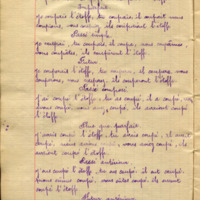 Imparfait
je coupais l'étoffe, tu coupais, il coupait, nous
coupions, vous ils coupaient l'étoffe
Passé simple
je coupai, tu coupas, il coupa, nous coupâmes
vous coupâtes, ils coupèrent l'étoffe.
Futur
je couperai l'étoffe, tu il coupera, nous
couperons, vous couperez, ils couperont l'étoffe.
Passé composé
j'ai coupé l'étoffe, tu as coupé, il a coupé,
nous avons coupé, vous avez coupé, ils ont coupé
l'étoffe
Plus que parfait
j'avais coupé l'étoffe, tu avais coupé, il avait
coupé, nous avions coupé, vous aviez coupé, ils
avaient coupé l'étoffe.
Passé antérieur
j'eus coupé l'étoffe, tu eus coupé, il eut coupé,
nous eûmes coupé, vous eûtes coupé, ils eurent
coupé l'étoffe.
Futur antérieur